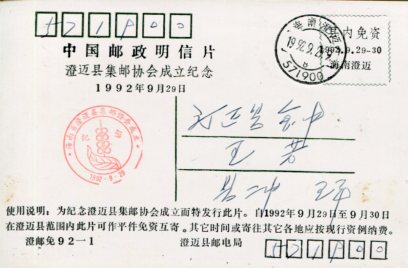 571900
中国邮政明信片
澄迈县集邮协会成立纪念
1992年9月29日
571900
国内免资
1992.9.29-30
海南澄迈
1992·9·29
王
使用说明：为纪念澄迈县集邮协会成立而特发行此片。自1992年9月29日至9月30日
在澄迈县范围内此片可作平件免资互寄。其它时间或寄往其它各地应按现行资例纳费。
澄邮免92-1 澄迈县邮电局
571900